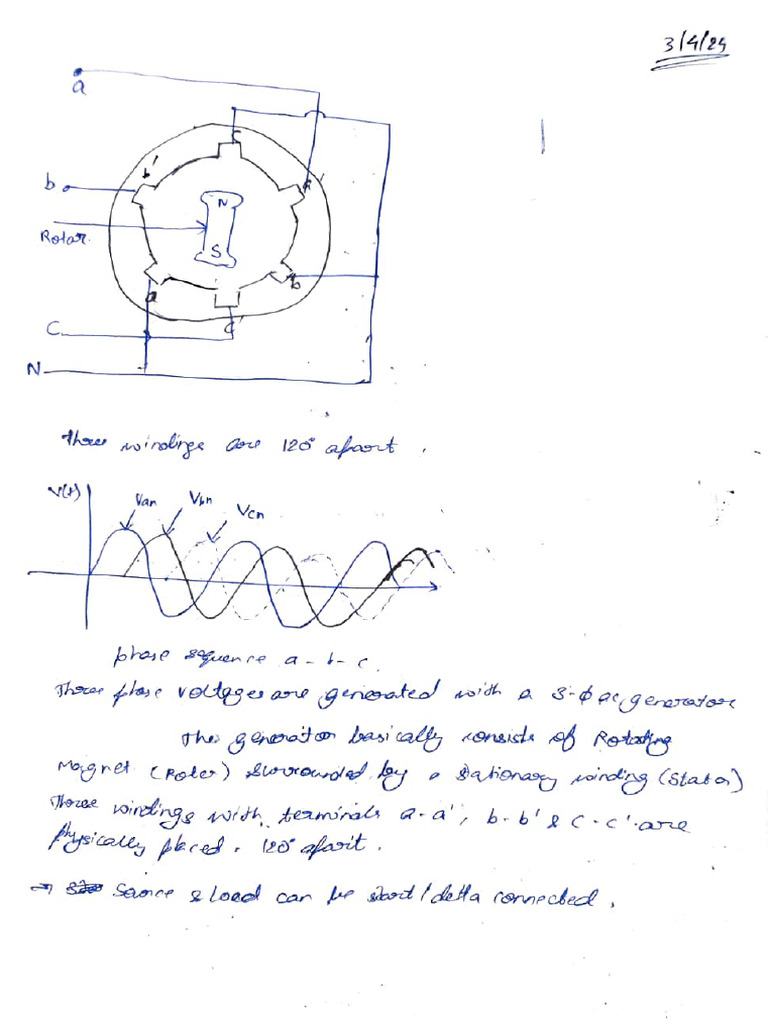 3/4/24
a
c
b'
a'
b
N
Rotar.
S
a
b
C
c'
N
Three windings are 120° apart.
V(t)
Van
Vbn
Vcn
phase sequence a-b-c.
Three phase voltages are generated with a 3-ϕ ac generator
The generator basically consists of Rotating
Magnet (Roter) surrounded by a stationary winding (Stator)
Three windings with terminals a-a', b-b' & c-c' are
physically placed 120° apart.
→ Source & load can be start/delta connected.